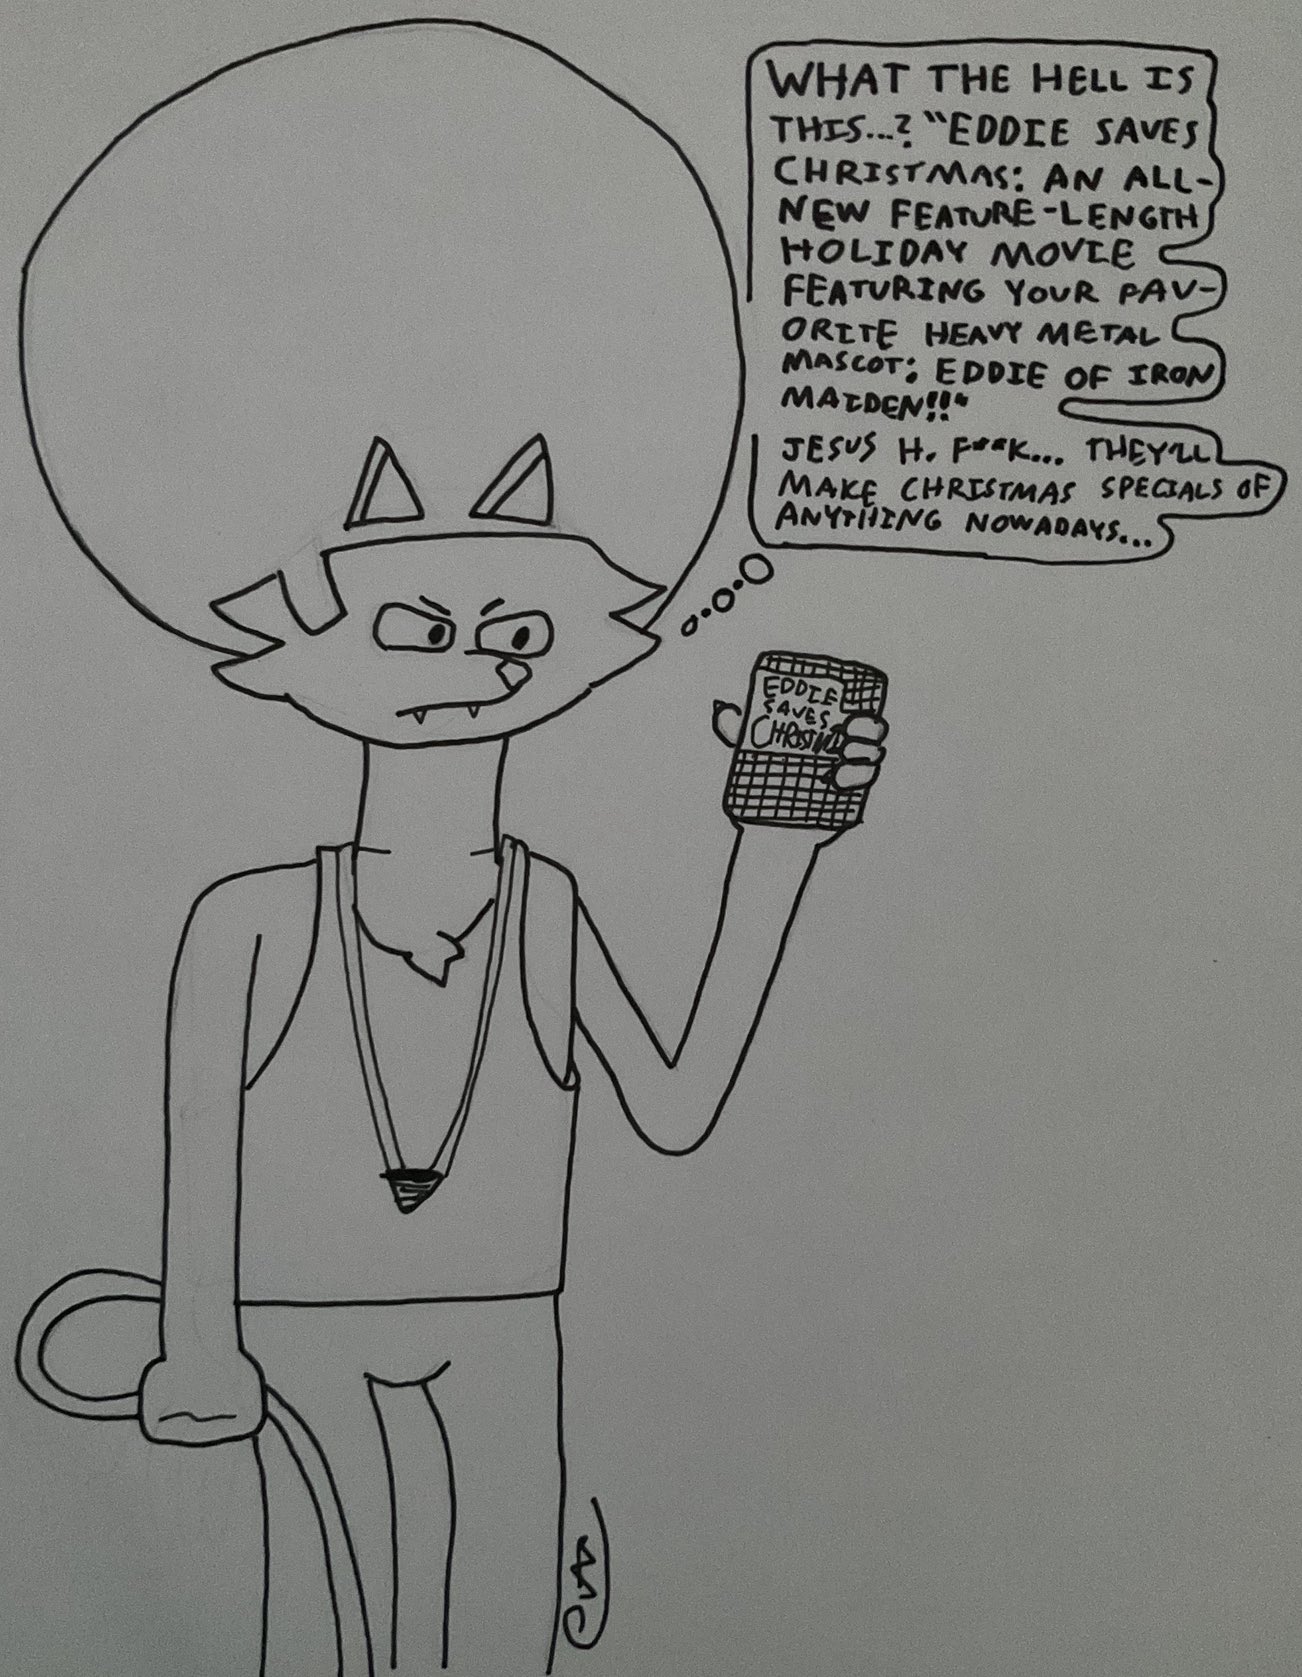 WHAT THE HELL IS
THIS...? "EDDIE SAVES
CHRISTMAS: AN ALL-
NEW FEATURE-LENGTH
HOLIDAY MOVIE
FEATURING YOUR FAV-
ORITE HEAVY METAL
MASCOT: EDDIE OF IRON
MAIDEN!!"
JESUS H. F**K... THEY'LL
MAKE CHRISTMAS SPECIALS OF
ANYTHING NOWADAYS...
EDDIE
SAVES